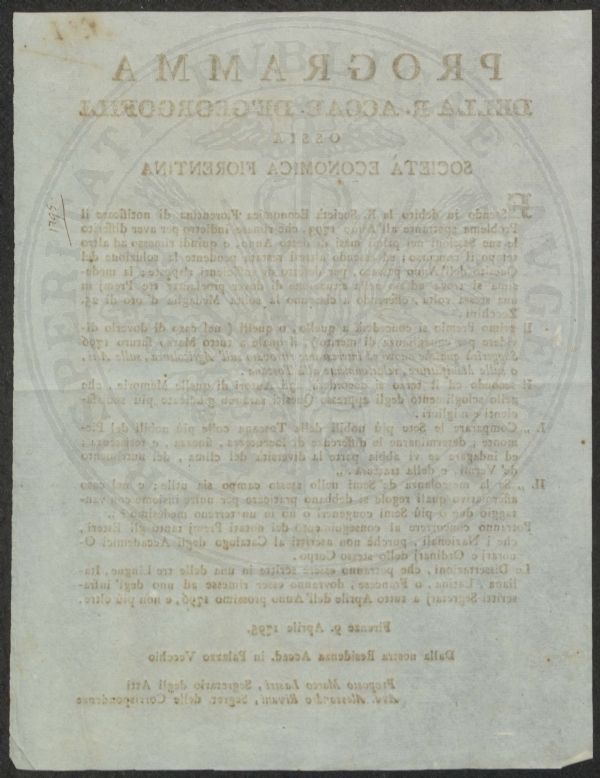 PROGRAMMA
DELLA R. ACCAD. DE'GEORGOFILI
OSSIA
SOCIETÀ ECONOMICA FIORENTINA
1795
Essendo in debito la R. Società Economica Fiorentina di notificare il
Problema spettante all'Anno 1795, che rimase indietro per aver differito
le sue Sessioni nei primi mesi di detto Anno, e quindi rimesso ad altro
tempo il concorso; ed essendo altresì restata pendente la soluzione del
Quesito dell'Anno passato, per difetto di sufficienti risposte; la mede-
sima si trova adesso nella situazione di dover proclamare tre Premj in
una stessa volta, offerendo a ciascuno la solita Medaglia d'oro di 25.
Zecchini.
Il primo Premio si concederà a quello, o quelli (nel caso di doverlo di-
videre per eguaglianza di merito), il quale a tutto Marzo futuro 1796
o sulle Manifatture, relativamente alla Toscana.
Il secondo ed il terzo si accorderà agli Autori di quelle Memorie, che
nello scioglimento degli appresso Quesiti saranno giudicate più soddisfa-
centi e migliori.
I. „ Comparare le Sete più nobili della Toscana colle più nobili del Pie-
monte; determinarne le differenze di lucentezza, finezza, e resistenza;
ed indagare se vi abbia parte la diversità del clima, del nutrimento
de' Vermi, o della trattura „
II. „ Se la mescolanza de' Semi nello stesso campo sia utile; e nel caso
affermativo quali regole si debbano praticare per unire insieme con van-
taggio due o più Semi congeneri o no in un terreno medesimo „.
Potranno concorrere al conseguimento dei notati Premj tanto gli Esteri,
che i Nazionali, purchè non ascritti al Catalogo degli Accademici O-
norarj e Ordinarj dello stesso Corpo.
Le Dissertazioni, che potranno essere scritte in una delle tre Lingue, Ita-
liana, Latina, o Francese, dovranno esser rimesse ad uno degl' infra-
scritti Segretarj a tutto Aprile dell'Anno prossimo 1796, e non più oltre.
Firenze 9. Aprile 1795.
Dalla nostra Residenza Accad. in Palazzo Vecchio
Proposto Marco Lastri, Segretario degli Atti
Avv. Alessandro Rivani, Segret. delle Corrispondenze